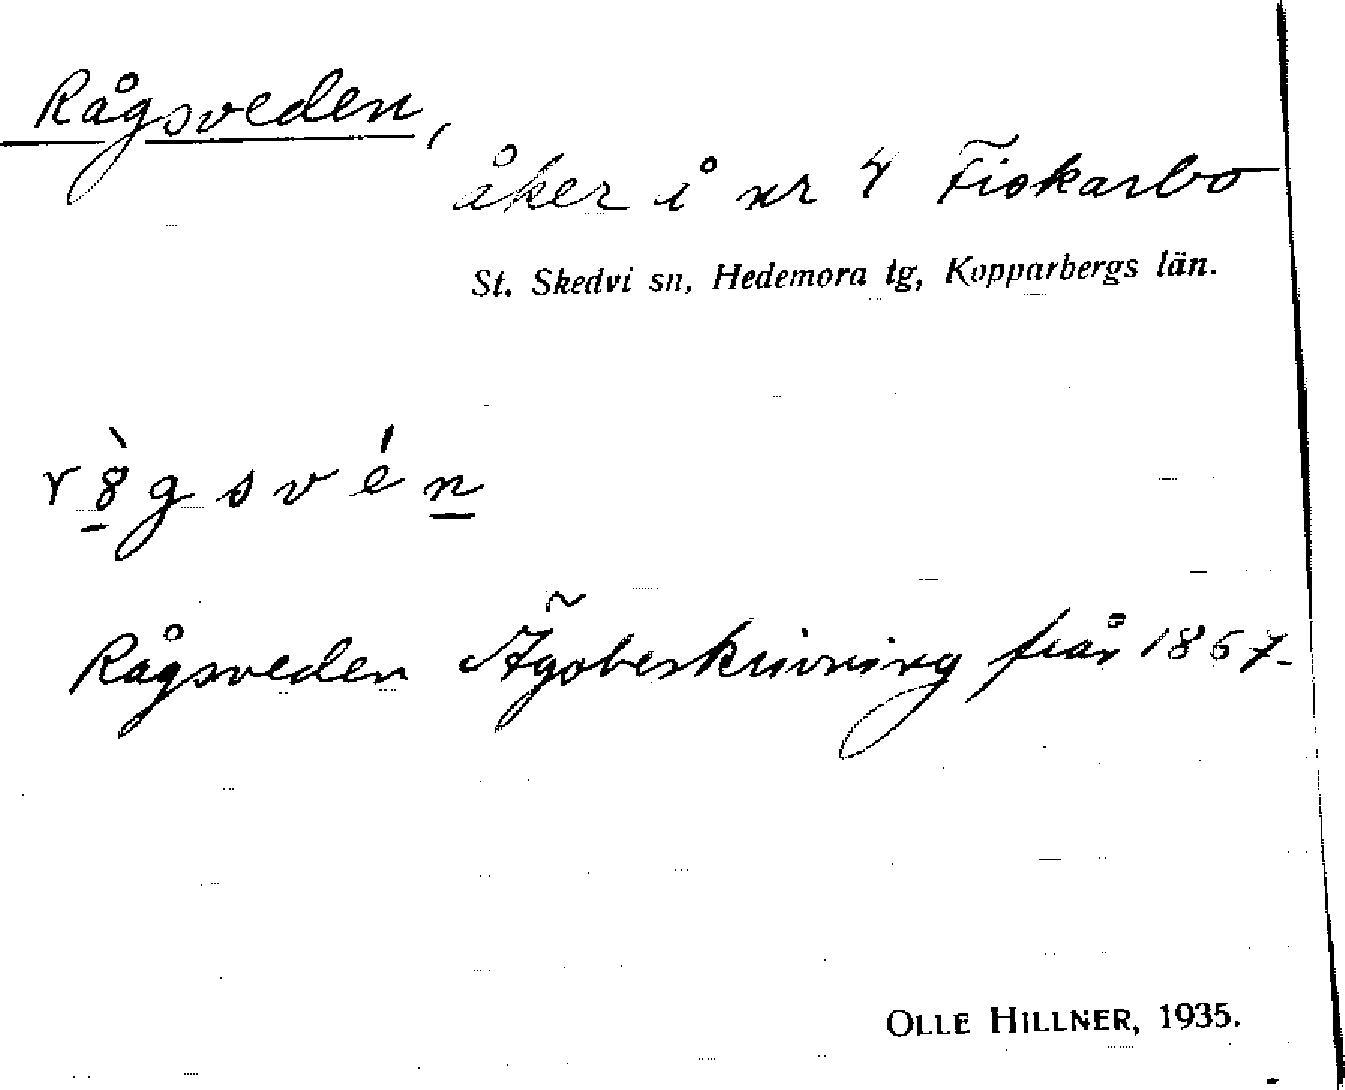 Rågsveden,
åker i nr 4 Fiskarbo
St. Skedvi sn, Hedemora tg, Kopparbergs län.
r8̱̀gsvén̲
Rågsveden Ägobeskrivning från 1867.
OLLE HILLNER, 1935.